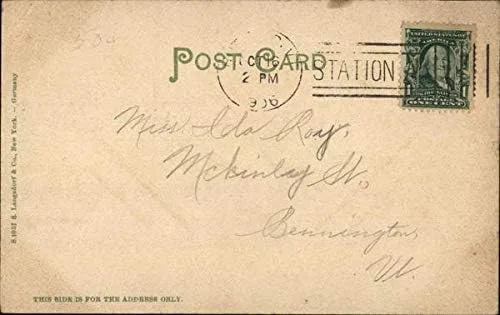 POST CARD
OCT 16
2 PM
1906
STATION
ONE CENT
Miss Ida Roy,
Mckinley St,
Bennington,
Vt.
S 1057 S. Langsdorf & Co., New York. — Germany
THIS SIDE IS FOR THE ADDRESS ONLY.